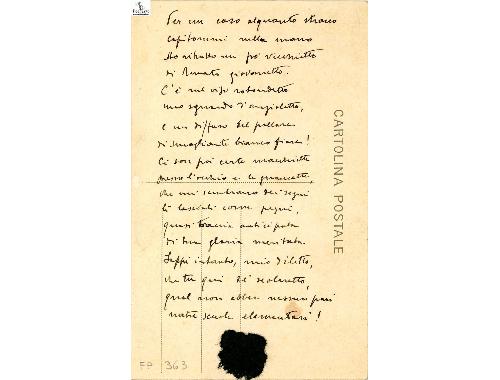 Per un caso alquanto strano
capitommi nella mano
sto ritratto un po' vecchietto
di Renato giovanetto.
C'è nel viso rotondetto
uno sguardo d'angioletto,
e un diffuso bel pallore
di smagliante bianco fiore!
Ci son poi certe macchiette
presso l'occhio e le
che mi sembrano dei segni
lì lasciati come pegni,
quasi traccia anticipata
di tua gloria meritata.
Sappi intanto, mio diletto,
che tu qui se' scolaretto,
qual non ebber nessun pari
nostre scuole elementari!
CARTOLINA POSTALE
FP 363